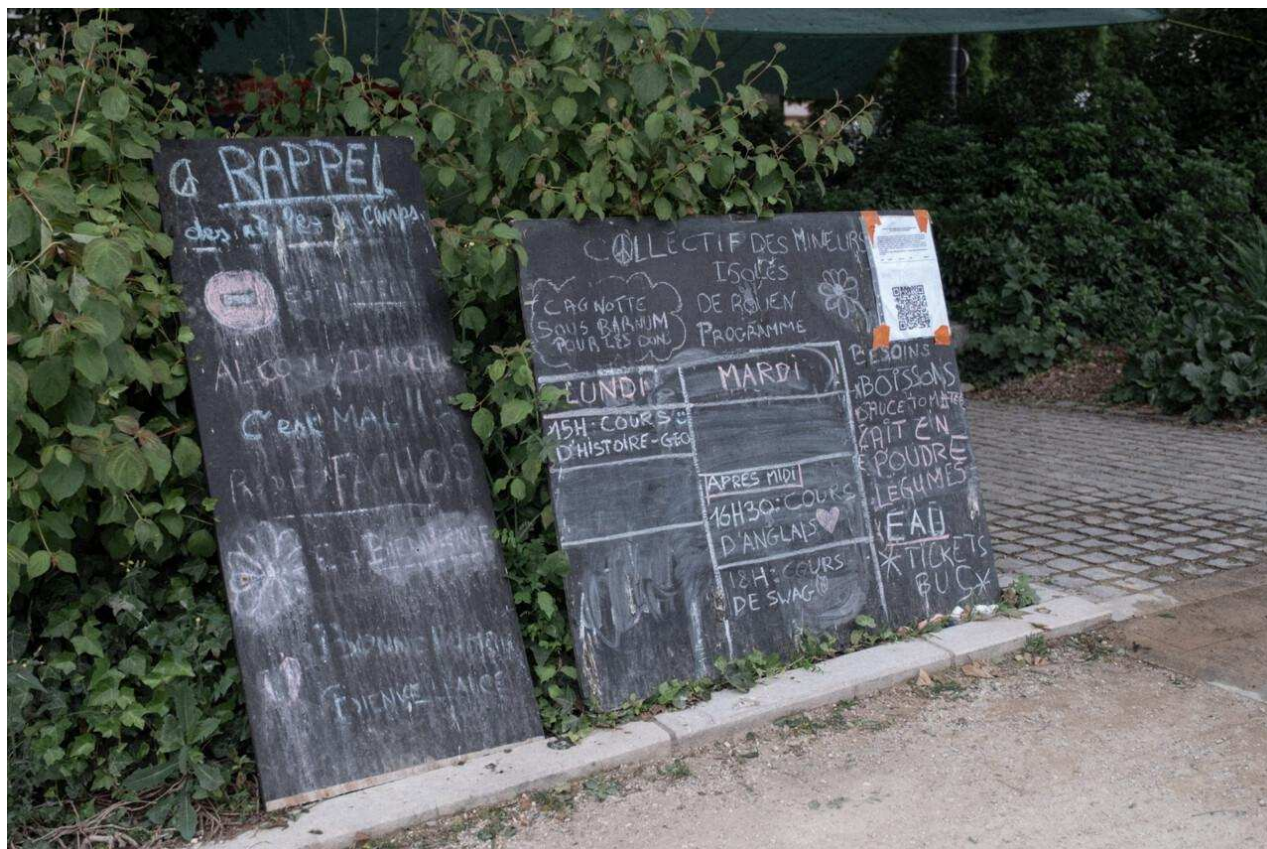 RAPPEL
des règles du camps
ALCOOL/DROGUE
C'est MAL !!
FACHOS
BIENVENUE
BONNE HUMEUR
BIENVEILLANCE
COLLECTIF DES MINEURS
ISOLÉS
DE ROUEN
PROGRAMME
CAGNOTTE
SOUS BARNUM
POUR LES DON
LUNDI
15H: COURS
D'HISTOIRE-GEO
MARDI
APRES MIDI
16H30: COURS
D'ANGLAIS
18H: COURS
DE SWAG
BESOINS
BOISSONS
SAUCE TOMATE
LAIT EN
POUDRE
LEGUMES
EAU
*TICKETS
BUS*